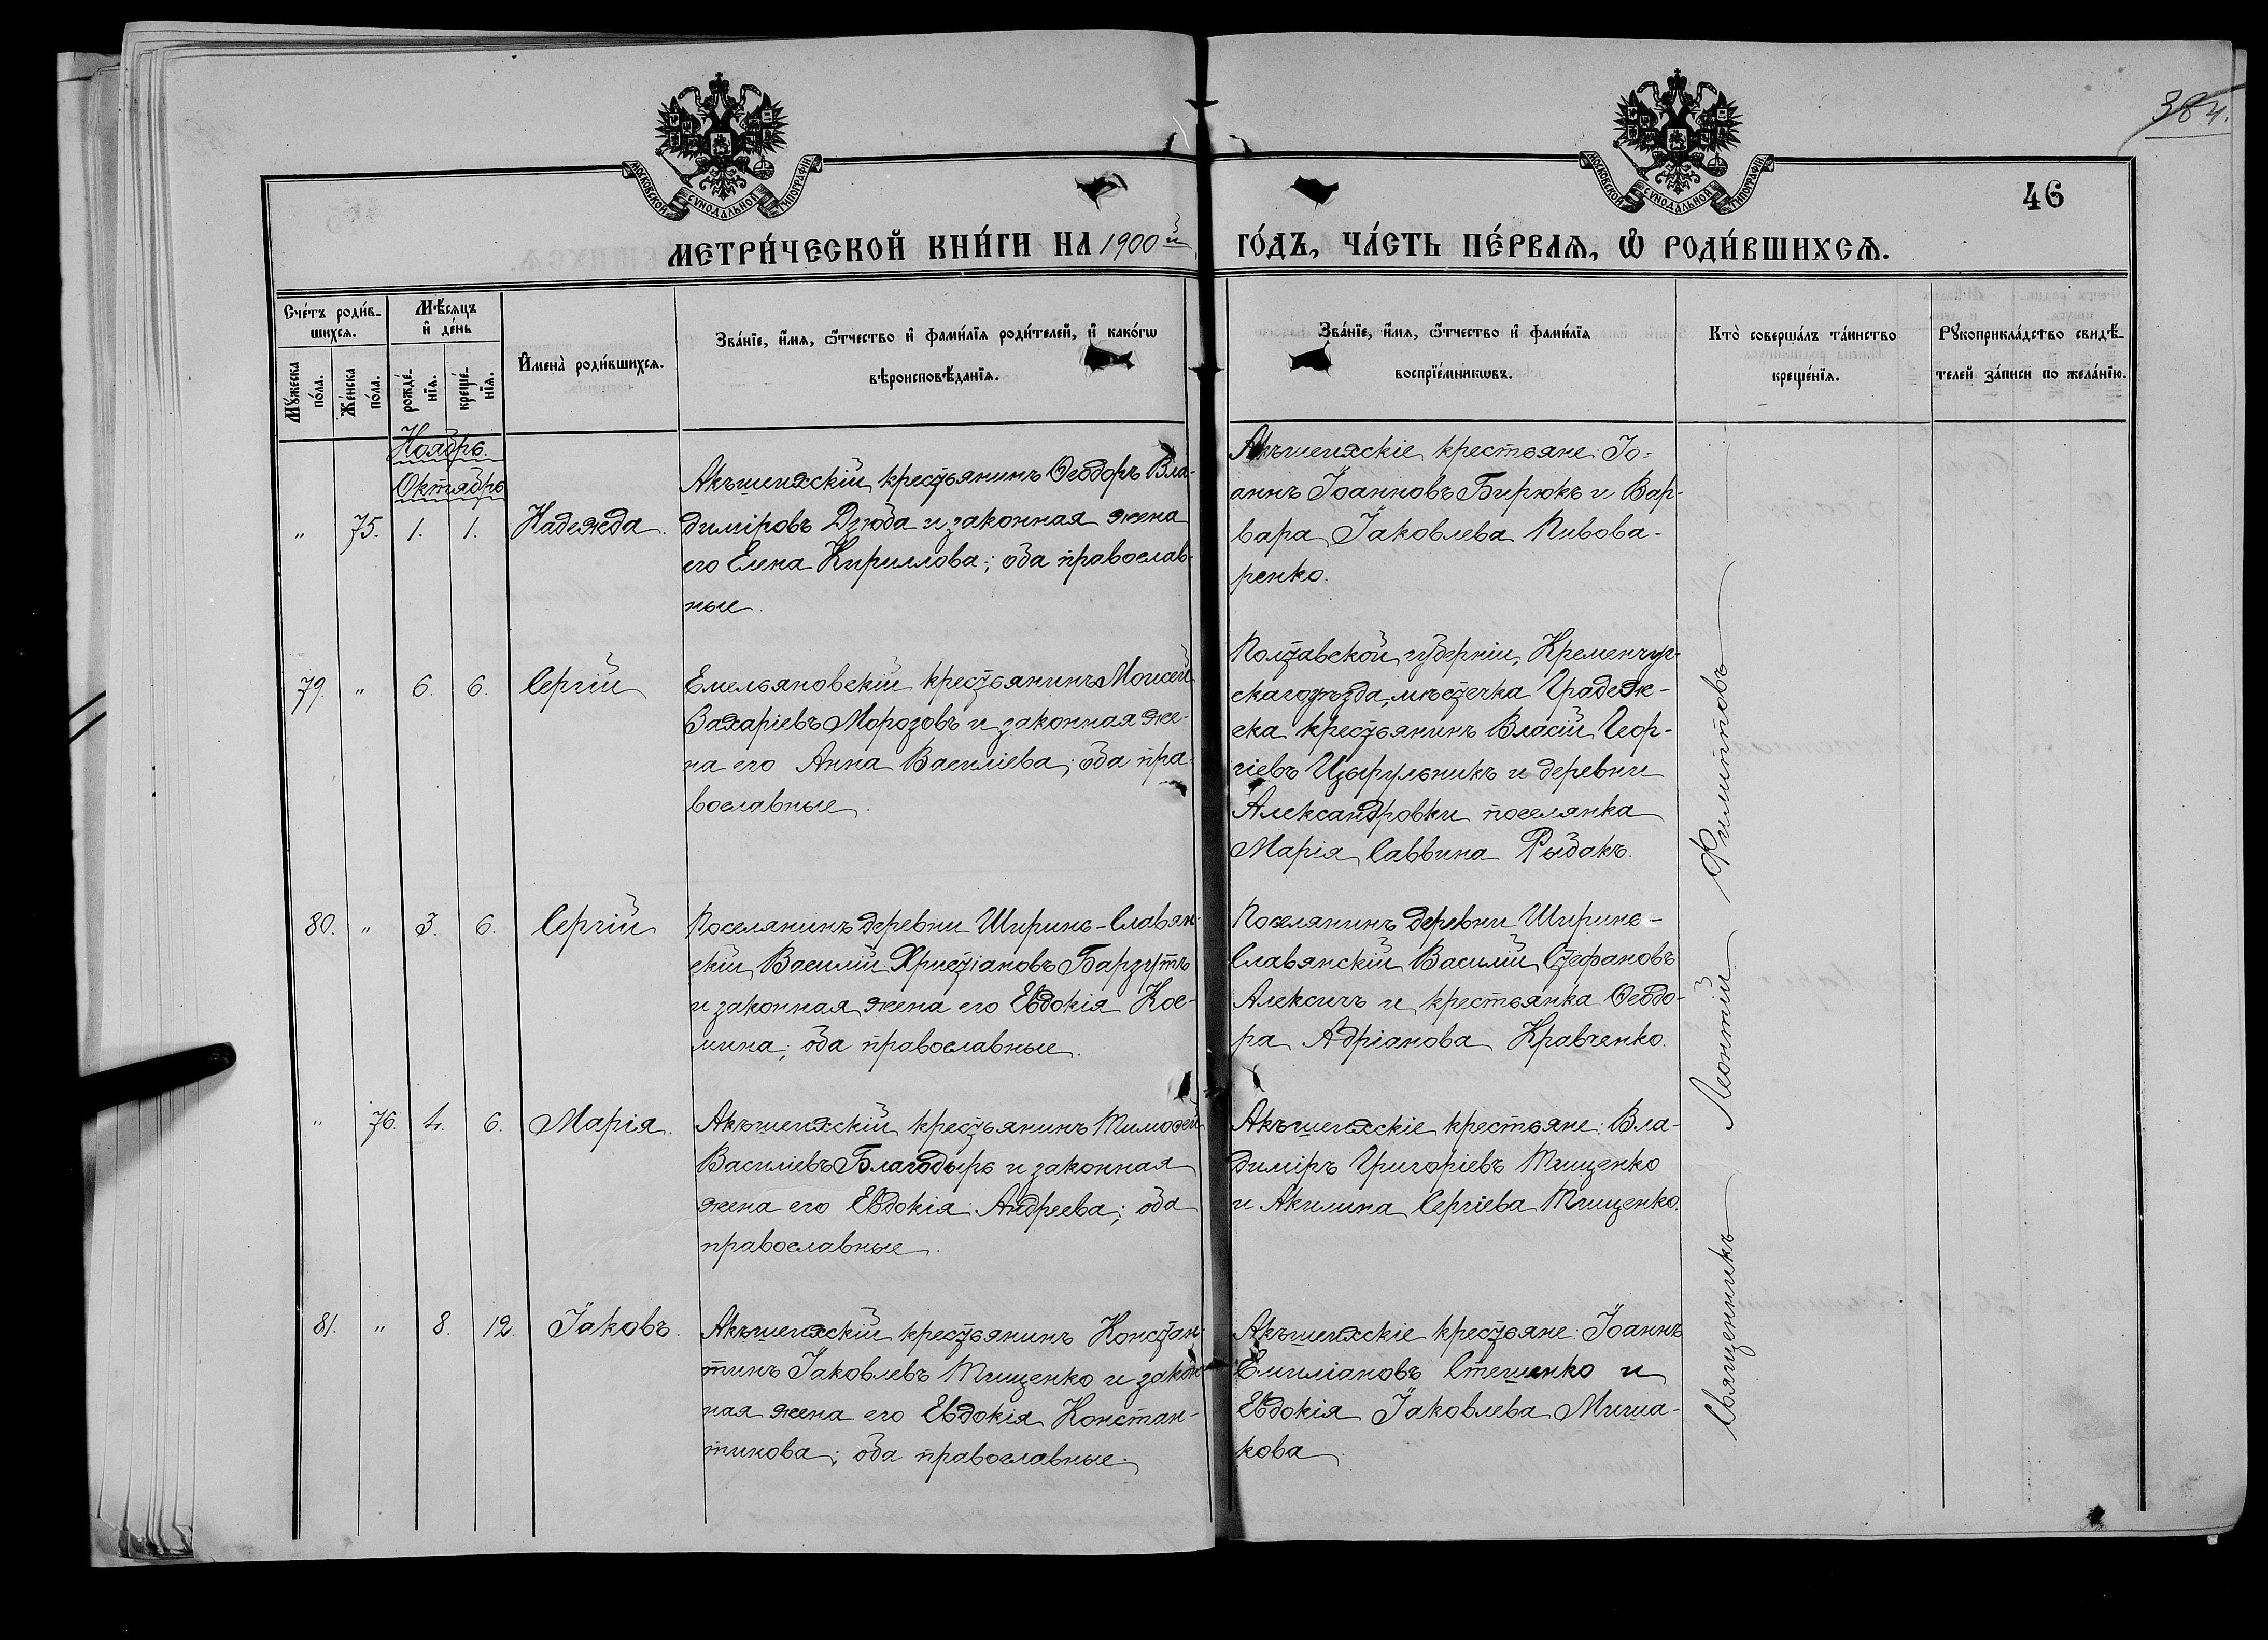 384.
46
МОСКОВСКОЙ СѴНОДАЛЬНОЙ ТИПОГРАФІИ
МОСКОВСКОЙ СѴНОДАЛЬНОЙ ТИПОГРАФІИ
МЕТРИ́ЧЕСКОЙ КНИ́ГИ НА 1900й ГО́ДЪ, ЧА́СТЬ ПЕ́РВАѦ, Ѽ РОДИ́ВШИХСѦ.
Сче́тъ роди́в-
шихся.
Мꙋжеска
по́ла.
Же́нска
по́ла.
Мѣ́сяцъ
и҆ де́нь
рожде́-
нїя.
креще́-
нїя.
И҆мена̀ роди́вшихся.
Зва́нїе, и҆́мя, ѻ҆́тчество и҆ фами́лїя роди́телей, и҆ како́гѡ
вѣроисповѣ́данїя.
Зва́нїе, и҆́мя, ѻ҆́тчество и҆ фами́лїя
воспрїе́мникѡвъ.
Кто̀ соверша́лъ та́инство
креще́нїя.
Рꙋкоприкла́дство свидѣ́-
телей за́писи по жела́нїю.
Ноябрь.
Октябрь
" 75. 1. 1. Надежда.
Акъшеихскій крестьянинъ Ѳеодоръ Вла-
диміровъ Дзюба и законная жена
его Елена Кириллова; оба православ-
ные.
Акъшеихскіе крестьяне: Іо-
аннъ Іоанновъ Бирюкъ и Вар-
вара Іаковлева Пивова-
ренко.
79. " 6. 6. Сергій
Емельяновскій крестьянинъ Моисей
Захаріевъ Морозовъ и законная же-
на его Анна Василіева; оба пра-
вославные.
Полтавской губерніи, Кременчуг-
скаго уѣзда, мѣстечка Градиж-
ска крестьянинъ Власій Геор-
гіевъ Цырульникъ и деревни
Александровки поселянка
Марія Саввина Рыбакъ.
80. " 3. 6. Сергій
Поселянинъ деревни Ширинъ-Славян-
скій Василій Христіановъ Барзутъ
и законная жена его Евдокія Кос-
мина; оба православные.
Поселянинъ деревни Ширинъ-
Славянскій Василій Стефановъ
Алексичъ и крестьянка Ѳеодо-
ра Адріанова Кравченко.
" 76. 4. 6. Марія.
Акъшеихскій крестьянинъ Тимоѳей
Василіевъ Благодыръ и законная
жена его Евдокія Андреева; оба
православные.
Акъшеихскіе крестьяне: Вла-
диміръ Григоріевъ Тищенко
и Акилина Сергіева Тищенко.
81. " 8. 12. Іаковъ.
Акъшеихскій крестьянинъ Констан-
тинъ Іаковлевъ Тищенко и закон-
ная жена его Евдокія Констан-
тинова; оба православные.
Акъшеихскіе крестьяне: Іоаннъ
Емиліановъ Стешенко и
Евдокія Іаковлева Миша-
кова.
Священникъ Леонтій Филипповъ